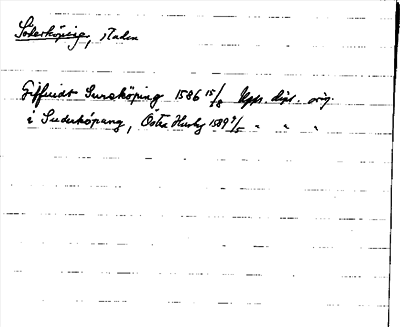 Söderköping, staden
Giffuidt Suraköping 1586 15/8 Upps. dipl. orig.
i Suderköpang, Östra Husby 1589 9/5 " " "